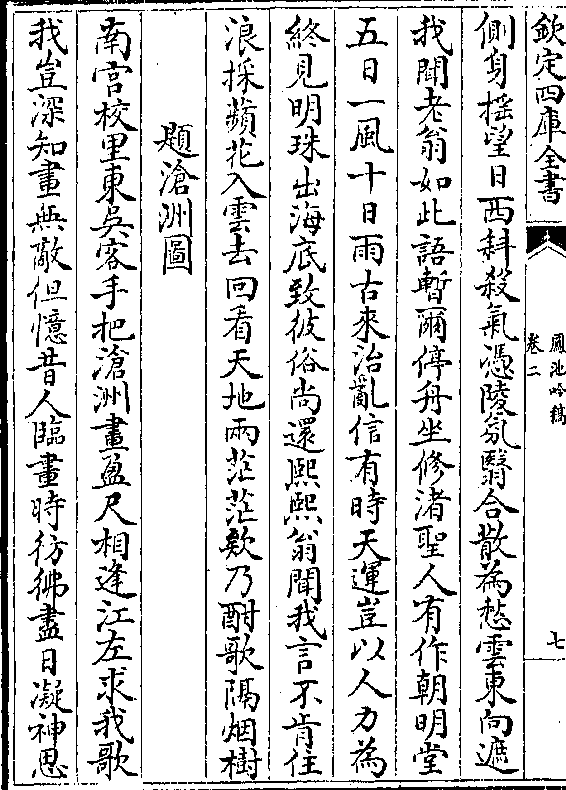 欽定四庫全書
鳳池吟稿
卷二
七
側身揺望日西斜殺氣憑陵氛翳合散為愁雲東向遮
我聞老翁如此語暫爾停舟坐修渚聖人有作朝明堂
五日一風十日雨古來治亂信有時天運豈以人力為
終見明珠出海底致彼俗尚還熙熙翁聞我言不肯住
浪採蘋花入雲去回看天地兩茫茫欸乃酣歌隔烟樹
題滄洲圖
南宫校里東吳客手把滄洲畫盈尺相逢江左求我歌
我豈深知畫無敵但憶昔人臨畫時彷彿盡日凝神思